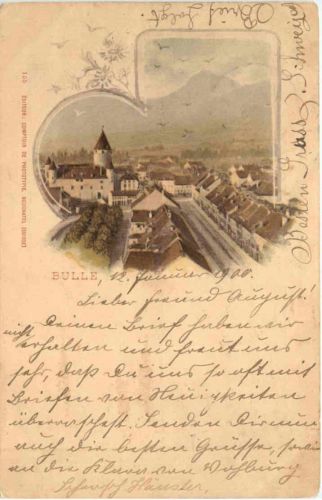 Brief folgt.
Besten Gruss a. d. Schweiz
102 EDITEUR: COMPTOIR DE PHOTOTYPIE, NEUCHATEL (SUISSE)
BULLE, 12. Januar 1900.
Lieber Freund August!
Deinen Brief haben wir
nicht erhalten und freut uns
sehr, daß Du uns so oft mit
Briefen von Neuigkeiten
überraschest. Senden Dir nun
auch die besten Grüsse, sowie
an die Klara von Wohburg